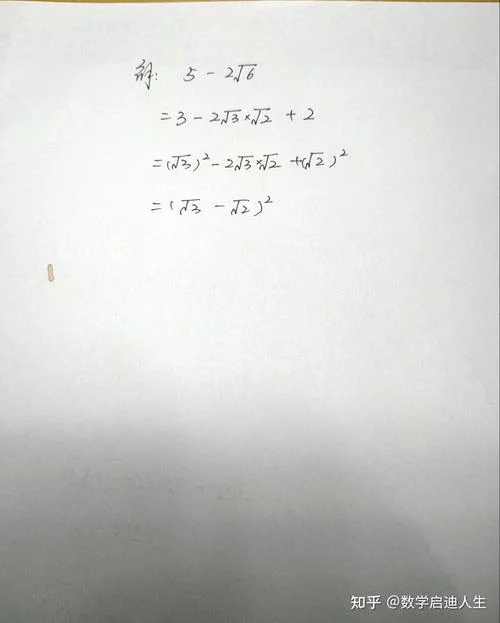 解: 5 - 2√6
= 3 - 2√3×√2 + 2
= (√3)² - 2√3×√2 + (√2)²
= (√3 - √2)²
知乎 @数学启迪人生